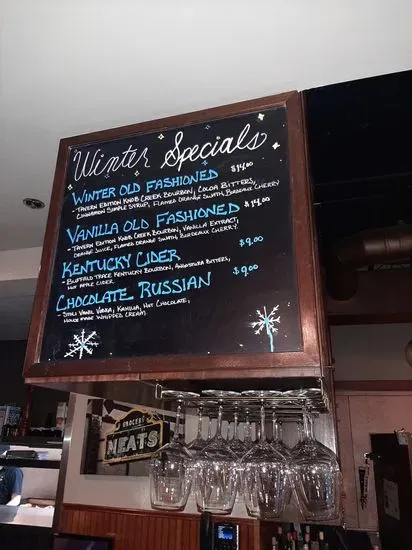 Winter Specials
WINTER OLD FASHIONED $14.00
- TAVERN EDITION KNOB CREEK BOURBON, COCOA BITTERS,
CINNAMON SIMPLE SYRUP, FLAMED ORANGE SWATH, BORDEAUX CHERRY
VANILLA OLD FASHIONED $14.00
- TAVERN EDITION KNOB CREEK BOURBON, VANILLA EXTRACT,
ORANGE JUICE, FLAMED ORANGE SWATH, BORDEAUX CHERRY.
KENTUCKY CIDER $9.00
- BUFFALO TRACE KENTUCKY BOURBON, ANGOSTURA BITTERS,
HOT APPLE CIDER
CHOCOLATE RUSSIAN $9.00
- STOLI VANIL VODKA, KAHLUA, HOT CHOCOLATE,
HOUSE MADE WHIPPED CREAM.
MEATS